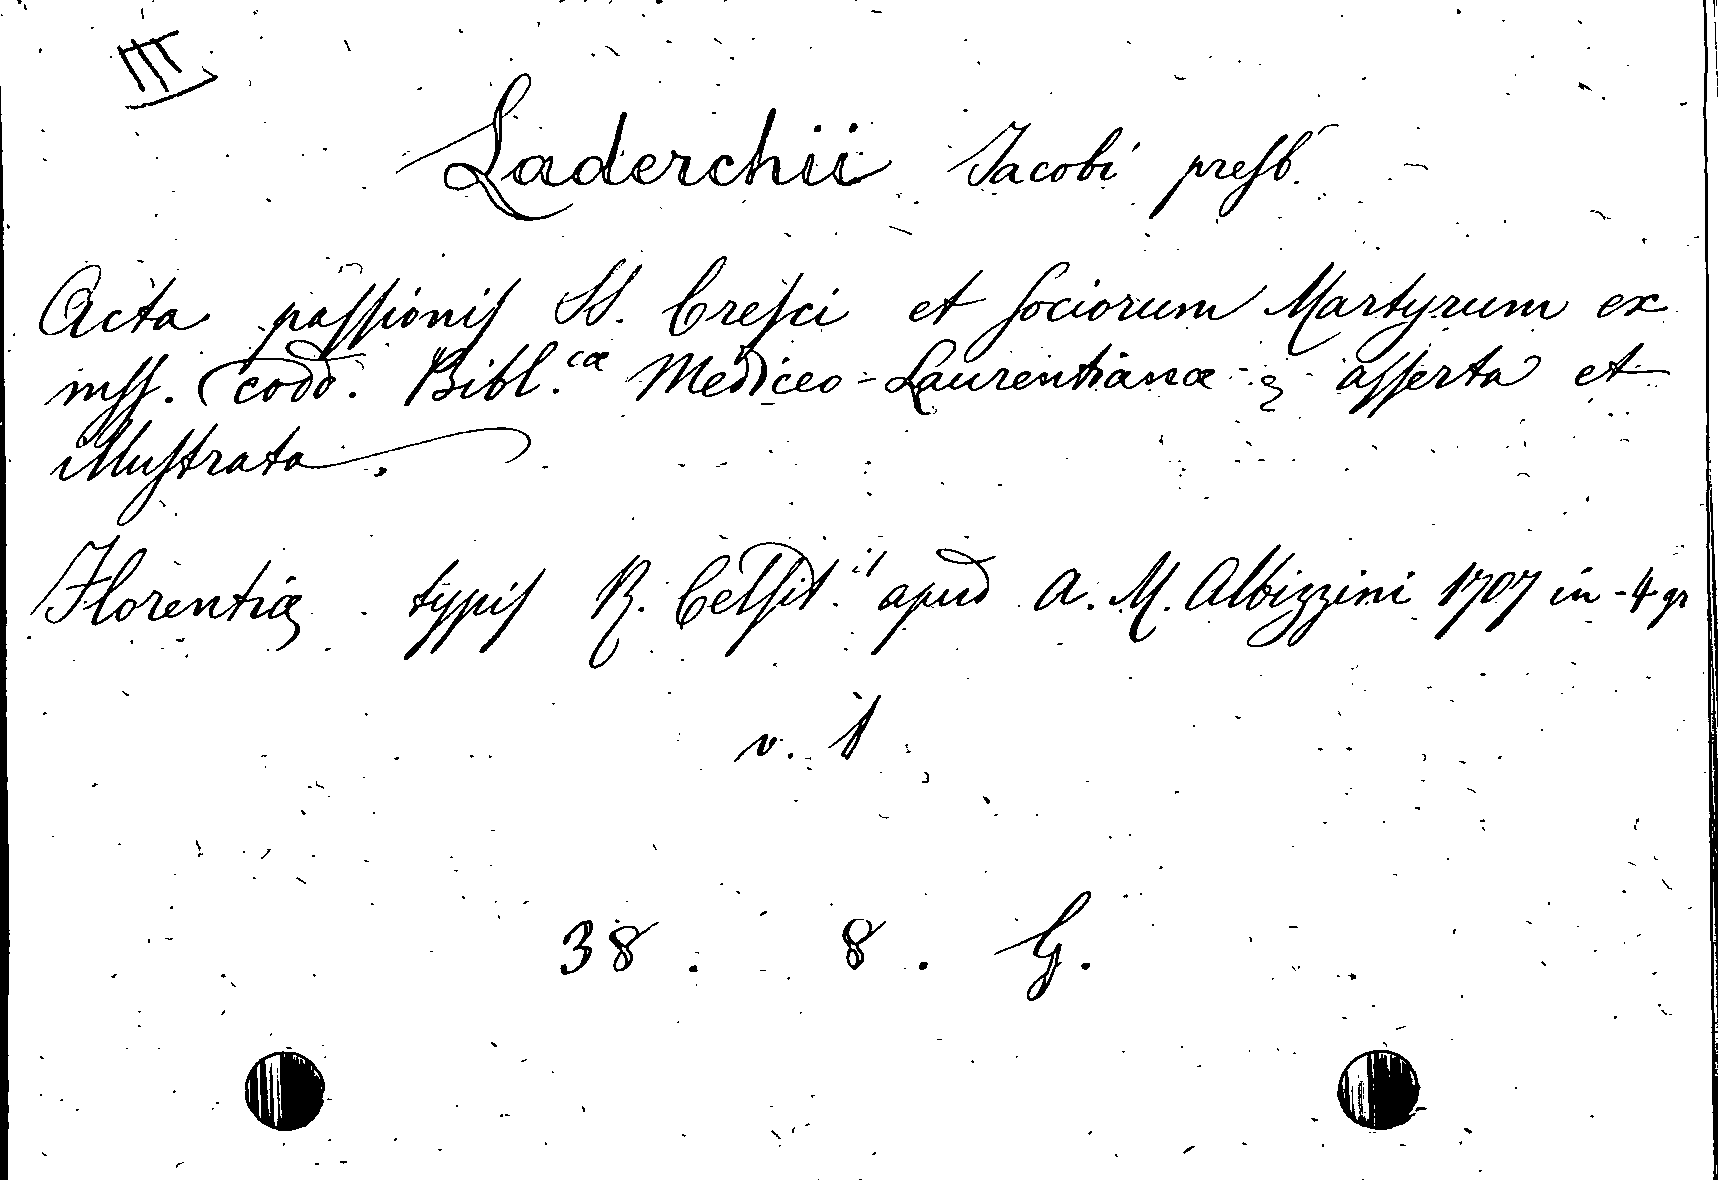 III
Laderchii Jacobi presb.
Acta passionis SS. Cresci et sociorum Martyrum ex
mss. codd. Bibl.cæ Mediceo-Laurentianæ asserta et
illustrata.
Florentiæ typis R. Celsit.is apud A. M. Albizzini 1707 in-4 gr
v. 1
38. 8. G.